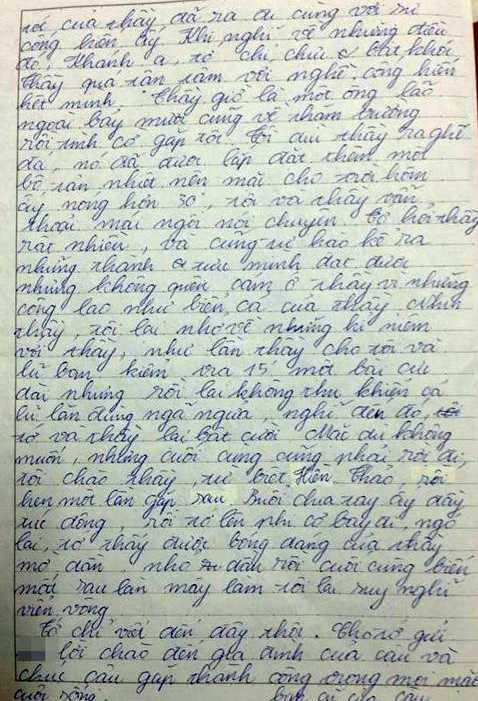 tóc của thầy đã ra đi cùng với sự
cống hiến ấy. Khi nghĩ về những điều
đó, Khanh ạ, tớ chỉ chực bật khóc.
Thầy quá tận tâm với nghề, cống hiến
hết mình. Thầy giờ là một ông lão
ngoài bảy mươi cũng về thăm trường
rồi tình cờ gặp tôi. Tôi dìu thầy ra ghế
đá, nó đã được lắp đặt thêm một
bộ tản nhiệt nên mặc cho trời hôm
ấy nóng hơn 30°, tôi và thầy vẫn
thoải mái ngồi nói chuyện. Tớ hỏi thầy
rất nhiều, và cũng tự hào kể ra
những thành tựu mình đạt được
nhưng không quên cảm ơ thầy vì những
công lao như biển cả của thầy. Nhìn
thầy, tôi lại nhớ về những kỉ niệm
với thầy, như lần thầy cho tôi và
lũ bạn kiểm tra 15' một bài cực
dài nhưng rồi lại không thu khiến cả
lũ lăn đùng ngã ngửa, nghĩ đến đó,
tớ và thầy lại bật cười. Mặc dù không
muốn, nhưng cuối cùng cũng phải rời đi,
tôi chào thầy, từ biệt Hiền Thảo, rồi
hẹn một lần gặp sau. Buổi chia tay ấy đầy
xúc động, rồi tớ lên phi cơ bay đi, ngó
lại, tớ thấy được bóng dáng của thầy
mờ dần, nhỏ dần rồi cuối cùng biến
mất sau làn mây làm tôi lại suy nghĩ
viển vông
Tớ chỉ viết đến đây thôi. Cho tớ gửi
lời chào đến gia đình của cậu và
chúc cậu gặp thành công trong mọi mặt
cuộc sống. bạn cũ của cậu